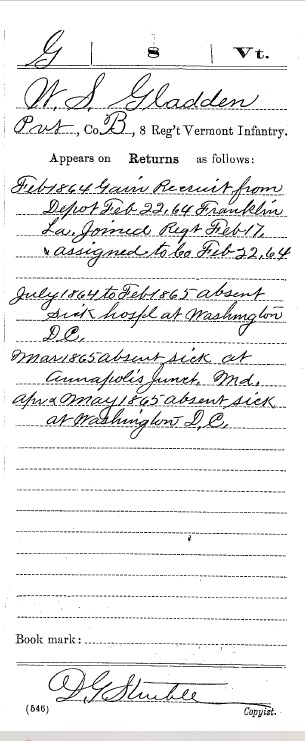 G | 8 | Vt.
W. S. Gladden
Pvt, Co. B, 8 Reg't Vermont Infantry.
Appears on Returns as follows:
Feb 1864 Gain Recruit from
Depot Feb 22, 64 Franklin
La. Joined Regt Feb 17.
& assigned to Co Feb 22, 64
July 1864 to Feb 1865 absent
sick hospl at Washington
D.C.
Mar 1865 absent sick at
Annapolis Junct. Md.
Apr & May 1865 absent sick
at Washington D.C.
Book mark:
D G Struble
(546) Copyist.